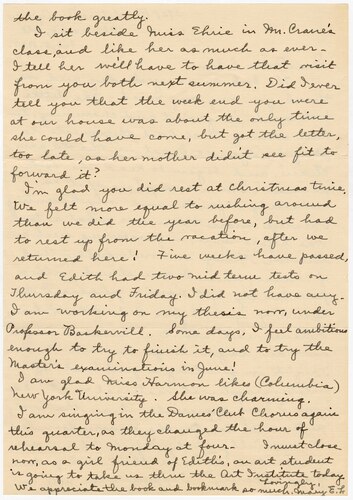 the book greatly.
I sit beside Miss Ehrie in Mr. Crane's
class, and like her as much as ever.
I tell her we'll have to have that visit
from you both next summer. Did I ever
tell you that the week end you were
at our house was about the only time
she could have come, but got the letter,
too late, as her mother didn't see fit to
forward it?
I'm glad you did rest at Christmas time.
We felt more equal to rushing around
than we did the year before, but had
to rest up from the vacation, after we
returned here! Five weeks have passed,
and Edith had two mid term tests on
Thursday and Friday. I did not have any.
I am working on my thesis now, under
Professor Baskervill. Some days, I feel ambitious
enough to try to finish it, and to try the
Master's examinations in June!
I am glad Miss Harmon likes (Columbia)
New York University. She was charming.
I am singing in the Dames' Club Chorus again
this quarter, as they changed the hour of
rehearsal to Monday at four. I must close
now, as a girl friend of Edith's, an art student
is going to take us thru the Art Institute today.
We appreciate the book and bookmark so much. Lovingly, Mary E. L.